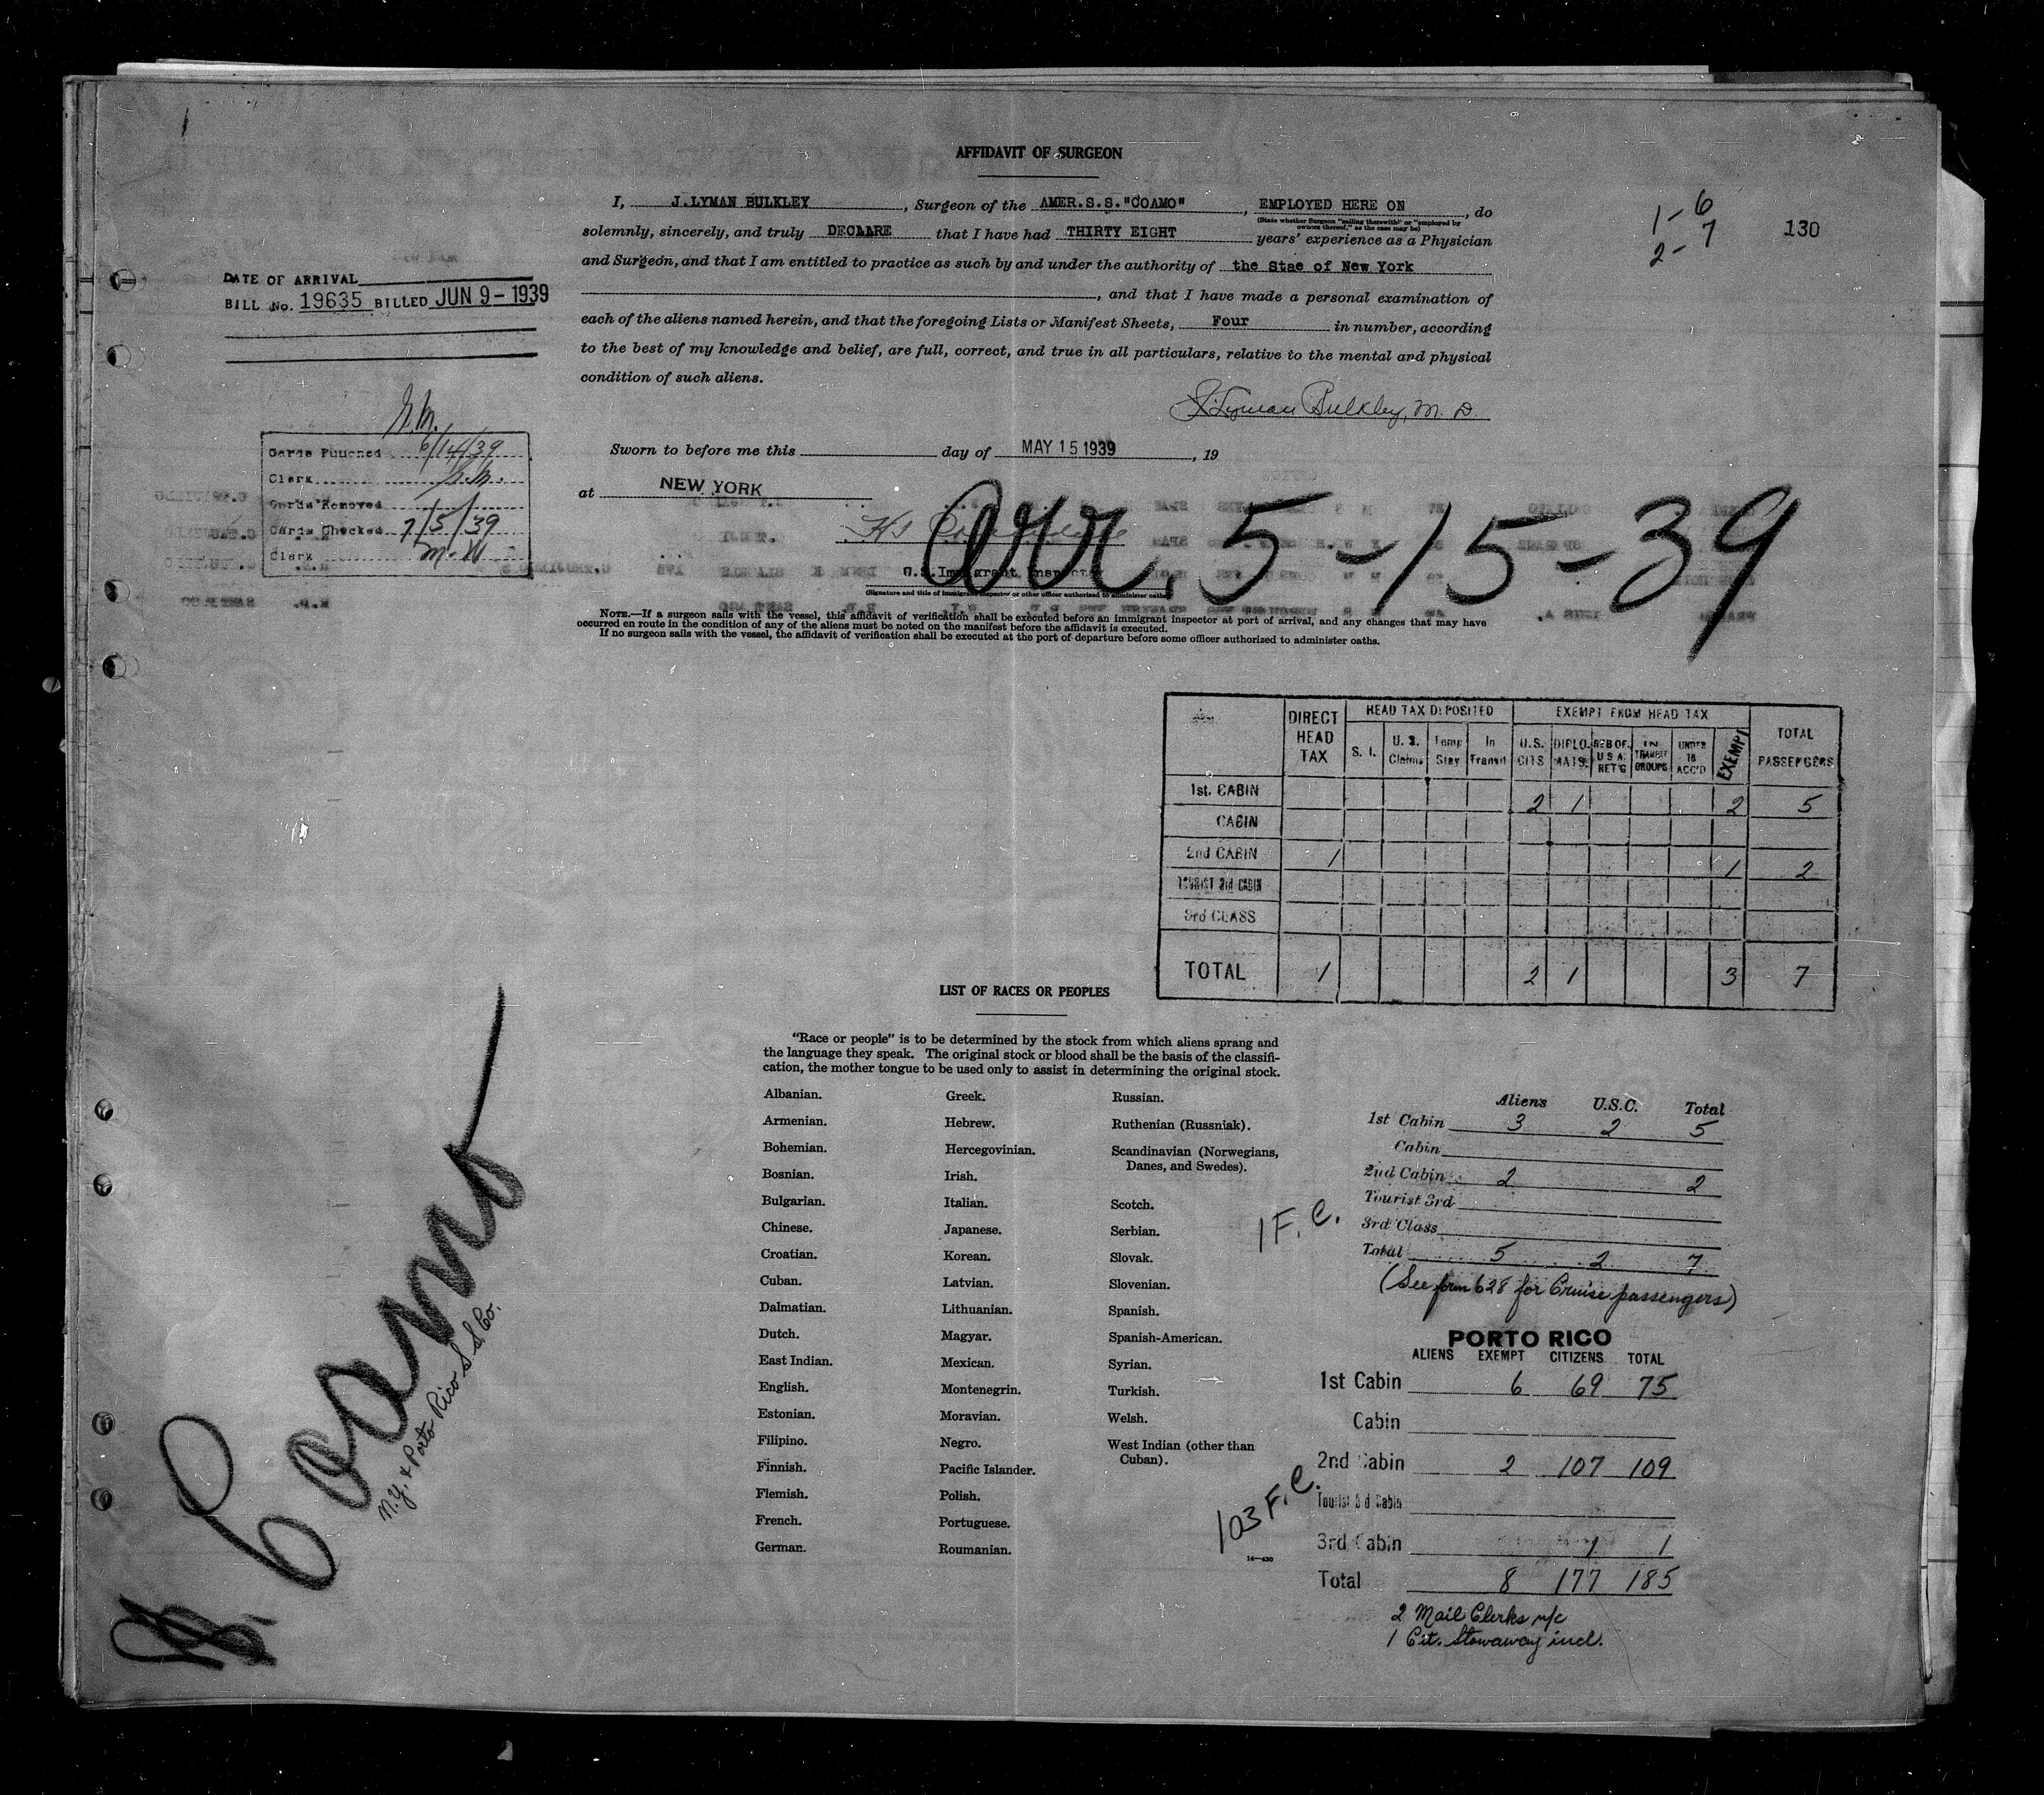 AFFIDAVIT OF SURGEON
I, J.LYMAN BULKLEY, Surgeon of the AMER.S.S."COAMO", EMPLOYED HERE ON, do
(State whether Surgeon "sailing therewith" or "employed by owners thereof," as the case may be)
solemnly, sincerely, and truly DECLARE that I have had THIRTY EIGHT years' experience as a Physician
and Surgeon, and that I am entitled to practice as such by and under the authority of the Stae of New York
, and that I have made a personal examination of
each of the aliens named herein, and that the foregoing Lists or Manifest Sheets, Four in number, according
to the best of my knowledge and belief, are full, correct, and true in all particulars, relative to the mental and physical
condition of such aliens.
J. Lyman Bulkley, M. D.
1- 6
2- 7
130
DATE OF ARRIVAL
BILL No. 19635 BILLED JUN 9 - 1939
Cards Punched 6/14/39
Clerk
Cards Removed
Cards Checked 7/5/39
Clerk M. W
Sworn to before me this day of MAY 15 1939, 19
at NEW YORK
Arr. 5-15-39
U.S. Immigrant Inspector
(Signature and title of immigrant inspector or other officer authorized to administer oaths)
NOTE.—If a surgeon sails with the vessel, this affidavit of verification shall be executed before an immigrant inspector at port of arrival, and any changes that may have
occurred en route in the condition of any of the aliens must be noted on the manifest before the affidavit is executed.
If no surgeon sails with the vessel, the affidavit of verification shall be executed at the port of departure before some officer authorized to administer oaths.
DIRECT HEAD TAX HEAD TAX DEPOSITED EXEMPT FROM HEAD TAX TOTAL PASSENGERS
S. I. U. S. Claims Temp Stay In Transit U.S. CITS DIPLO- MATS. RES OF. U S A. RET'G IN TRANSIT GROUPS UNDER 16 ACC'D EXEMPT
1st. CABIN 2 1 2 5
CABIN
2nd CABIN 1 1 2
TOURIST 3rd CABIN
3rd CLASS
TOTAL 1 2 1 3 7
LIST OF RACES OR PEOPLES
"Race or people" is to be determined by the stock from which aliens sprang and
the language they speak. The original stock or blood shall be the basis of the classifi-
cation, the mother tongue to be used only to assist in determining the original stock.
Albanian.
Armenian.
Bohemian.
Bosnian.
Bulgarian.
Chinese.
Croatian.
Cuban.
Dalmatian.
Dutch.
East Indian.
English.
Estonian.
Filipino.
Finnish.
Flemish.
French.
German.
Greek.
Hebrew.
Hercegovinian.
Irish.
Italian.
Japanese.
Korean.
Latvian.
Lithuanian.
Magyar.
Mexican.
Montenegrin.
Moravian.
Negro.
Pacific Islander.
Polish.
Portuguese.
Roumanian.
Russian.
Ruthenian (Russniak).
Scandinavian (Norwegians,
Danes, and Swedes).
Scotch.
Serbian.
Slovak.
Slovenian.
Spanish.
Spanish-American.
Syrian.
Turkish.
Welsh.
West Indian (other than
Cuban).
14—430
Aliens U.S.C. Total
1st Cabin 3 2 5
Cabin
2nd Cabin 2 2
Tourist 3rd
3rd Class
Total 5 2 7
1 F. C.
(See form 628 for Cruise passengers)
PORTO RICO
ALIENS EXEMPT CITIZENS TOTAL
1st Cabin 6 69 75
Cabin
2nd Cabin 2 107 109
Tourist 3d Cabin
3rd Cabin 1 1
Total 8 177 185
103 F. C.
2 Mail Clerks n/c
1 Cit. Stowaway incl.
Coamo
N.Y. & Porto Rico S.S. Co.